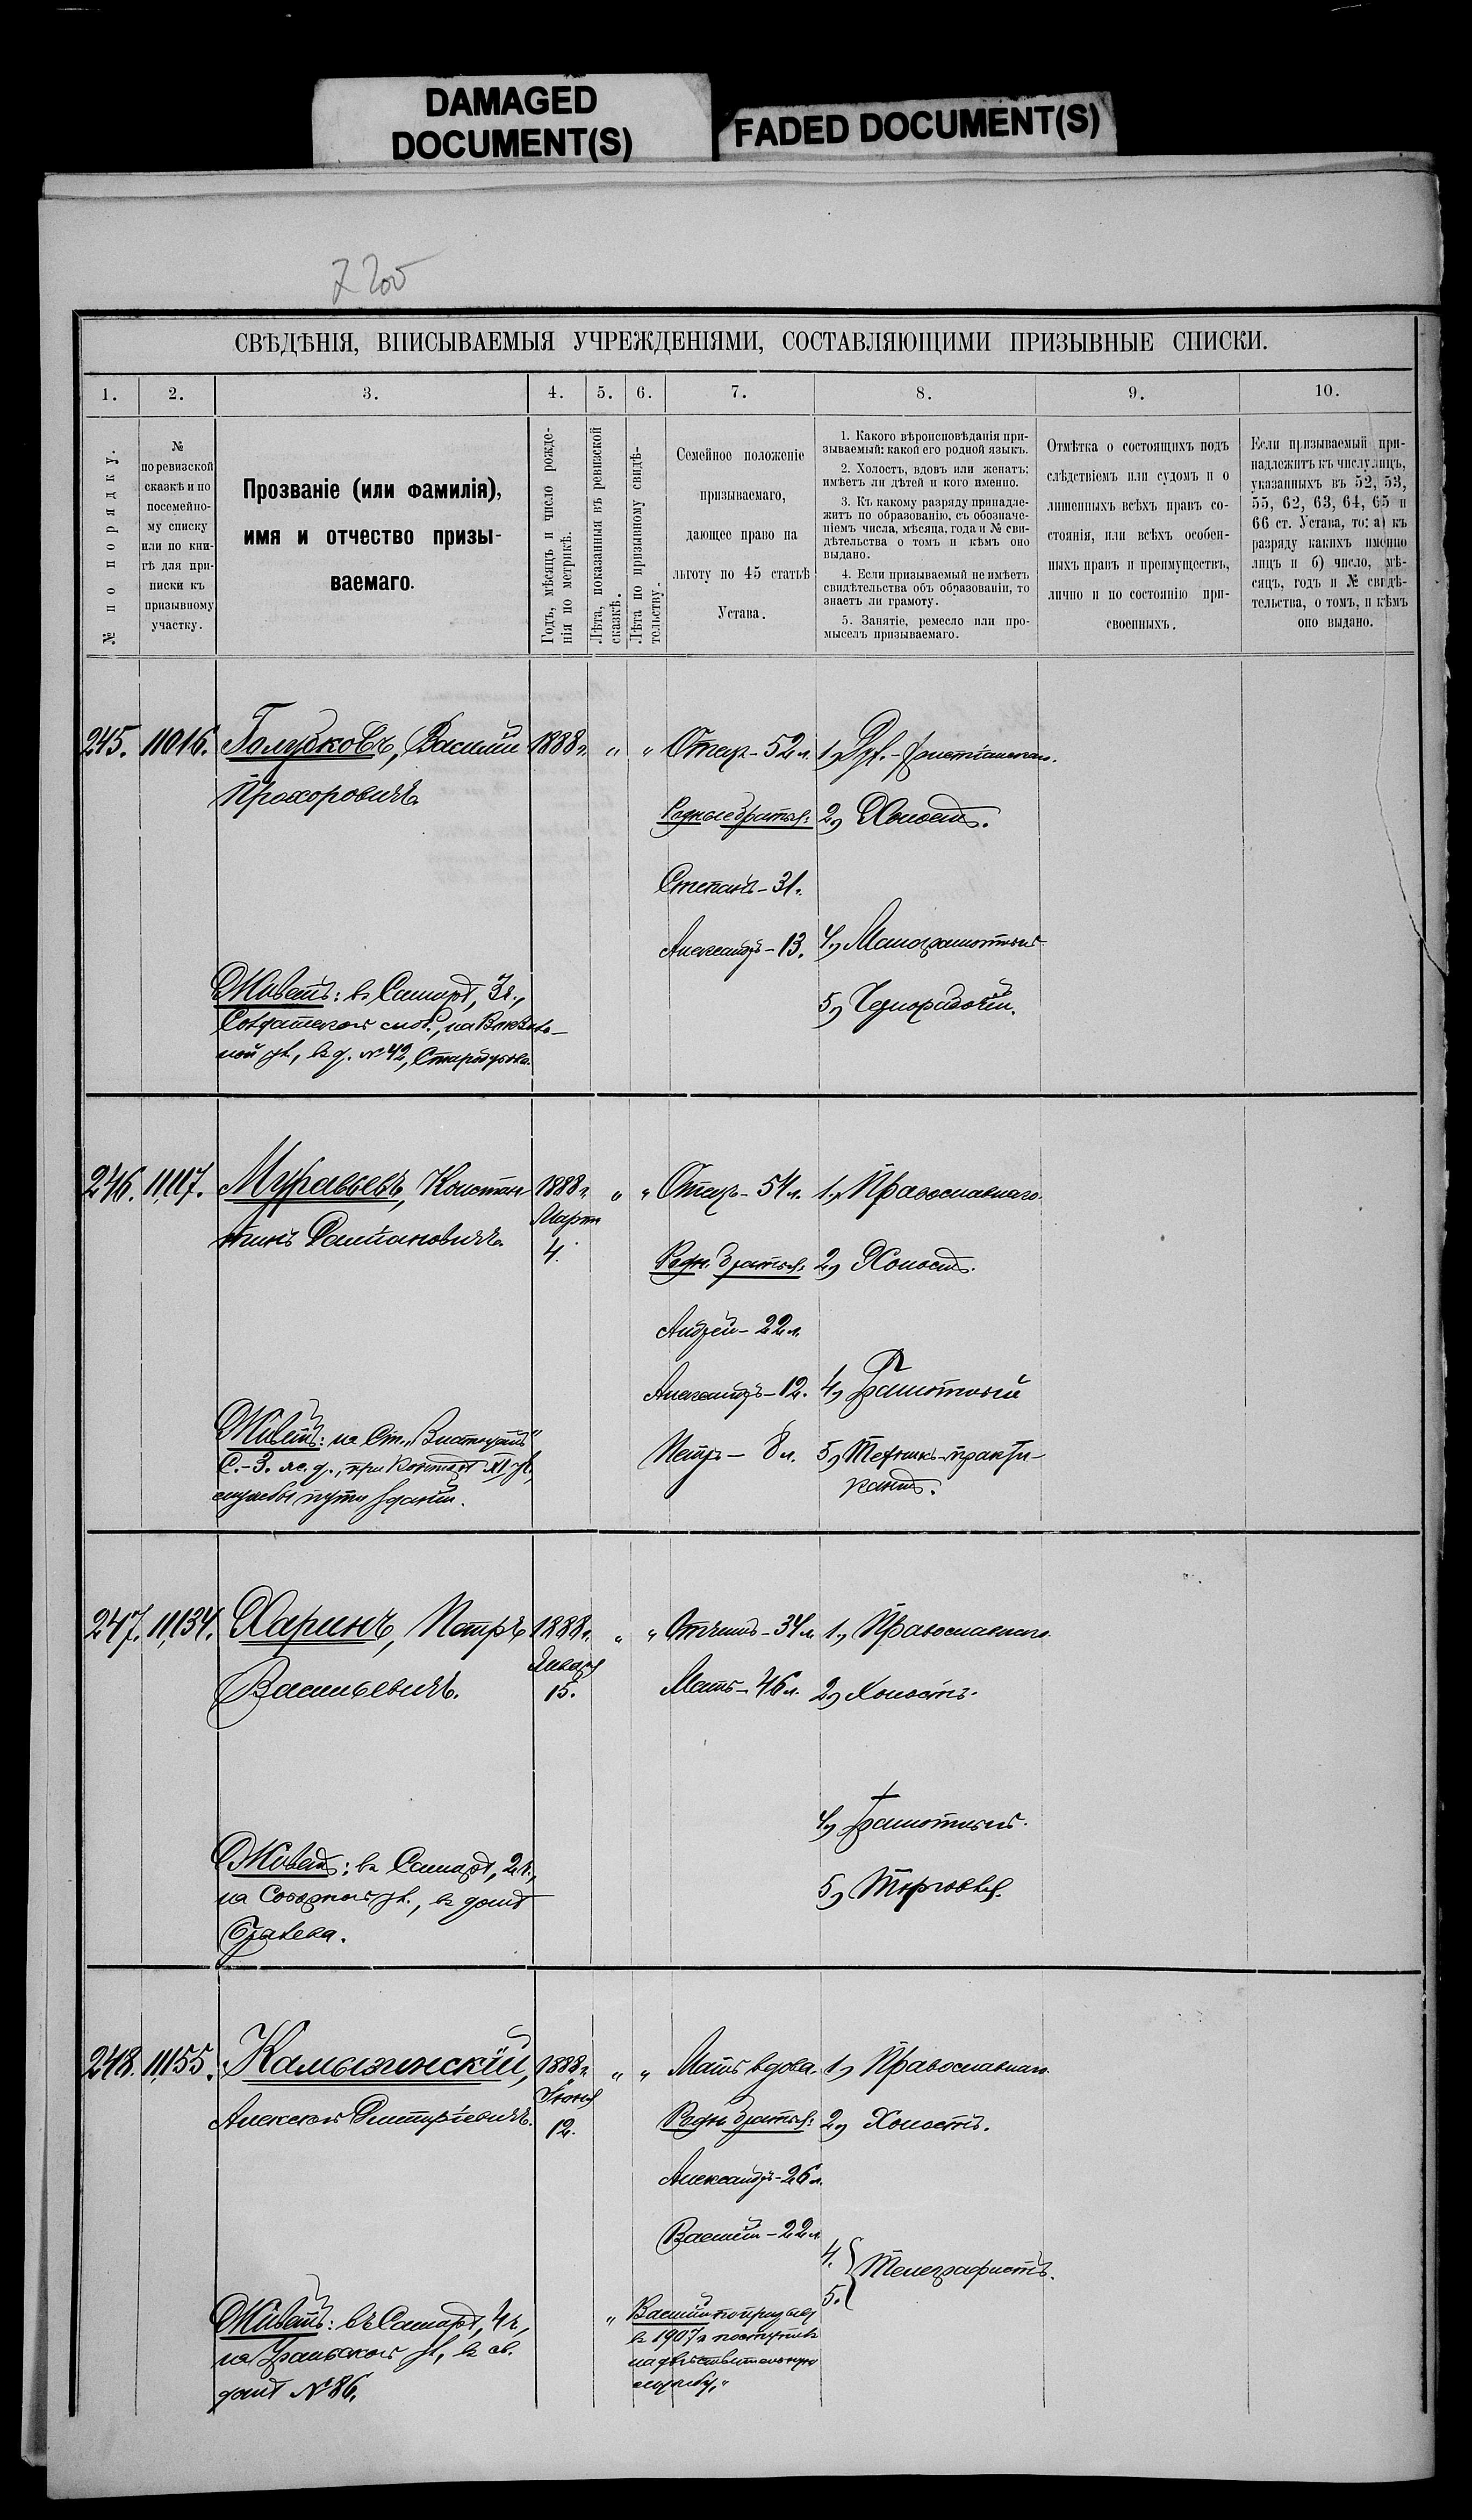 DAMAGED
DOCUMENT(S)
FADED DOCUMENT(S)
СВѢДѢНІЯ, ВПИСЫВАЕМЫЯ УЧРЕЖДЕНІЯМИ, СОСТАВЛЯЮЩИМИ ПРИЗЫВНЫЕ СПИСКИ.
1. 2. 3. 4. 5. 6. 7. 8. 9. 10.
№ по порядку.
№
по ревизской
сказкѣ и по
посемейно-
му списку
или по кни-
гѣ для при-
писки къ
призывному
участку.
Прозваніе (или фамилія),
имя и отчество призы-
ваемаго.
Годъ, мѣсяцъ и число рожде-
нія по метрикѣ.
Лѣта, показанныя въ ревизской
сказкѣ.
Лѣта по призывному свидѣ-
тельству.
Семейное положеніе
призываемаго,
дающее право на
льготу по 45 статьѣ
Устава.
1. Какого вѣроисповѣданія при-
зываемый; какой его родной языкъ.
2. Холостъ, вдовъ или женатъ;
имѣетъ ли дѣтей и кого именно.
3. Къ какому разряду принадле-
житъ по образованію, съ обозначе-
ніемъ числа, мѣсяца, года и № сви-
дѣтельства о томъ и кѣмъ оно
выдано.
4. Если призываемый не имѣетъ
свидѣтельства объ образованіи, то
знаетъ ли грамоту.
5. Занятіе, ремесло или про-
мыселъ призываемаго.
Отмѣтка о состоящихъ подъ
слѣдствіемъ или судомъ и о
лишенныхъ всѣхъ правъ со-
стоянія, или всѣхъ особен-
ныхъ правъ и преимуществъ,
лично и по состоянію при-
своенныхъ.
Если призываемый при-
надлежитъ къ числу лицъ,
указанныхъ въ 52, 53,
55, 62, 63, 64, 65 и
66 ст. Устава, то: а) къ
разряду какихъ именно
лицъ и б) число, мѣ-
сяцъ, годъ и № свидѣ-
тельства, о томъ, и кѣмъ
оно выдано.
245. 11016. Голубковъ, Василій 1888 г. " " Отецъ - 52 л.
Прохоровичъ.
Родные братья: 2, Холостъ.
Степанъ - 31.
Александръ - 13. 4, Малограмотный
5, Чернорабочій.
Живетъ: въ Самарѣ, 3 ч.,
ной ул., въ д. № 42,
246. 11,117. Муравьевъ, Констан- 1888 г. " " Отецъ - 54 л. 1, Православнаго.
тинъ
Мартъ
4.
Родн. братья: 2, Холостъ.
Андрей - 22 л.
Александръ - 12. 4, Грамотный
Петръ - 8 л. 5, Техникъ-практи-
кантъ.
Живетъ: на Ст.
службы пути
247. 11,134. Харинъ, Петръ 1888 г. " " Отчимъ - 34 л. 1, Православнаго.
Васильевичъ.
Января
15.
Мать - 46 л. 2, Холостъ.
4, Грамотный.
5, Торговля.
Живетъ: въ Самарѣ, 2 ч.,
на Соборной ул., въ домѣ
248. 11,155. Камышинскій, 1888 г. " " Мать вдова. 1, Православнаго.
Алексѣй Дмитріевичъ.
Іюня
12.
Родн. братья: 2, Холостъ.
Александръ - 26 л.
Василій - 22 л.
4. 5. Телеграфистъ.
Живетъ: въ Самарѣ, 4 ч.,
на Уральской ул., въ св.
домѣ № 86.
" Василій по призыву
въ 1907 г. поступилъ
на дѣйствительную
службу."